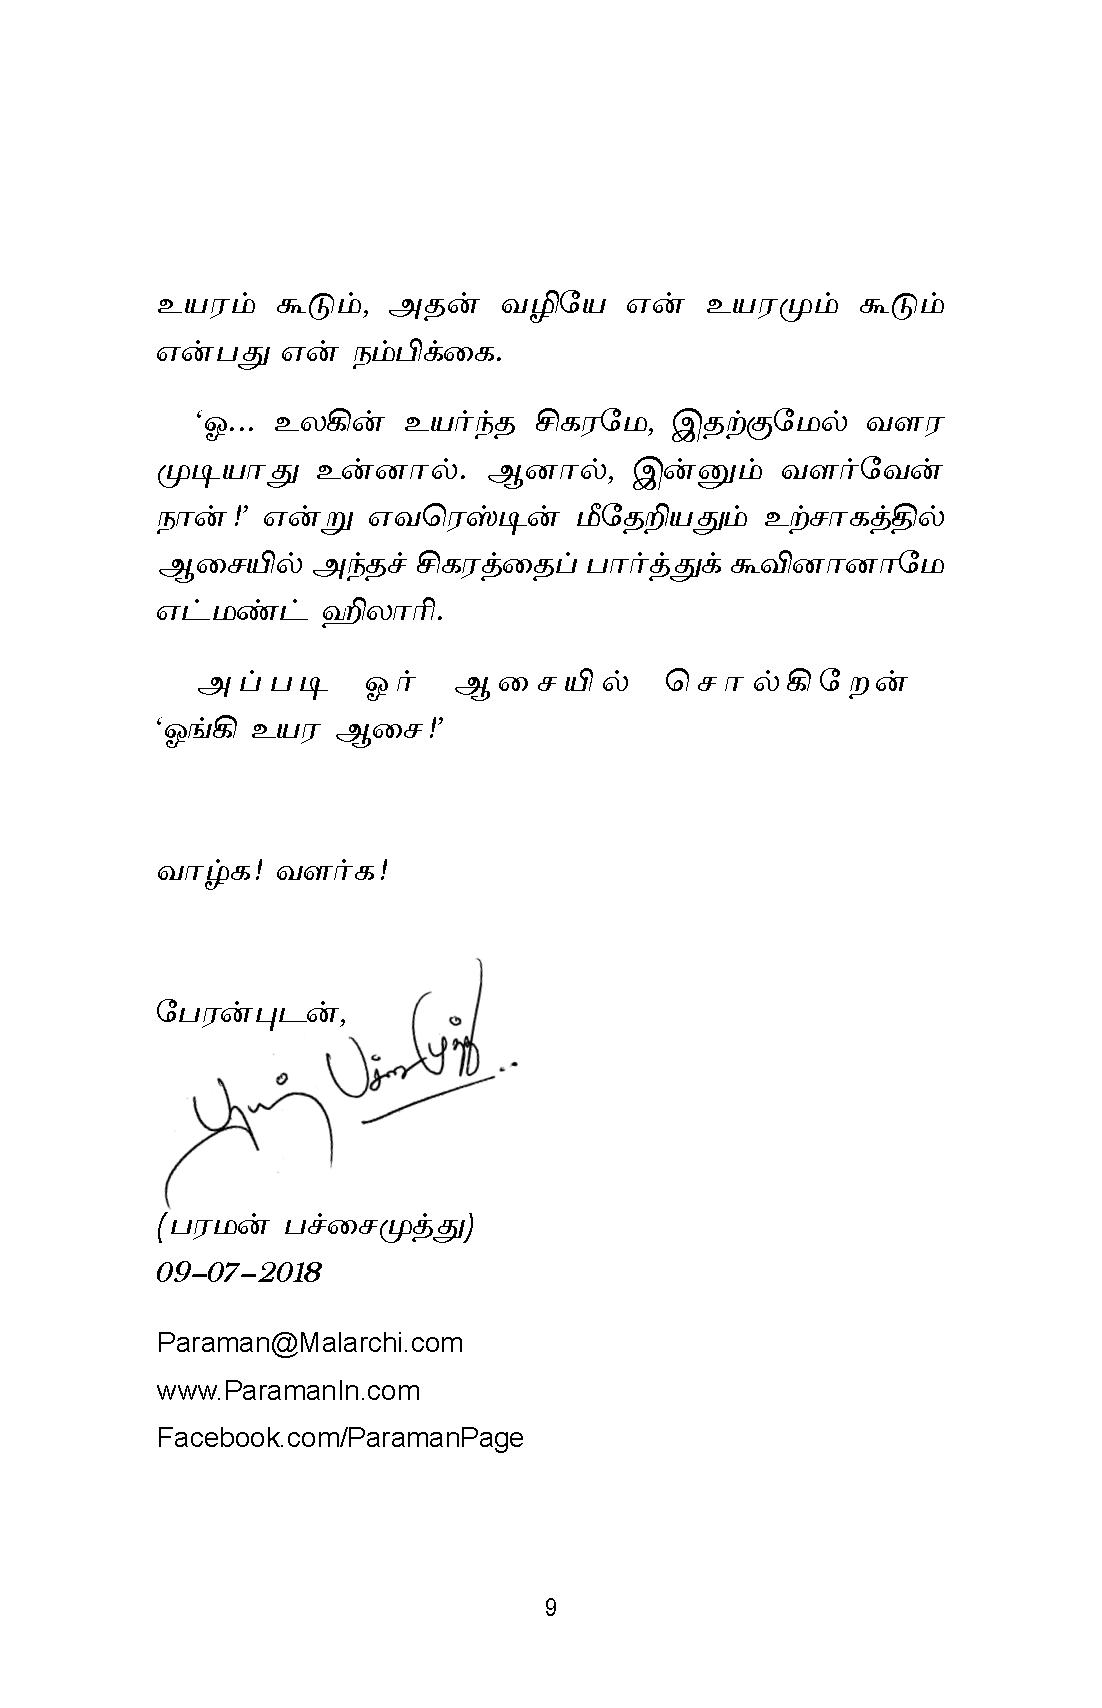 உயரம் கூடும், அதன் வழியே என் உயரமும் கூடும்
என்பது என் நம்பிக்கை.
‘ஓ... உலகின் உயர்ந்த சிகரமே, இதற்குமேல் வளர
முடியாது உன்னால். ஆனால், இன்னும் வளர்வேன்
நான்!’ என்று எவரெஸ்டின் மீதேறியதும் உற்சாகத்தில்
ஆசையில் அந்தச் சிகரத்தைப் பார்த்துக் கூவினானாமே
எட்மண்ட் ஹிலாரி.
அப்படி ஓர் ஆசையில் சொல்கிறேன்
‘ஓங்கி உயர ஆசை!’
வாழ்க! வளர்க!
பேரன்புடன்,
(பரமன் பச்சைமுத்து)
09-07-2018
Paraman@Malarchi.com
www.ParamanIn.com
Facebook.com/ParamanPage
9